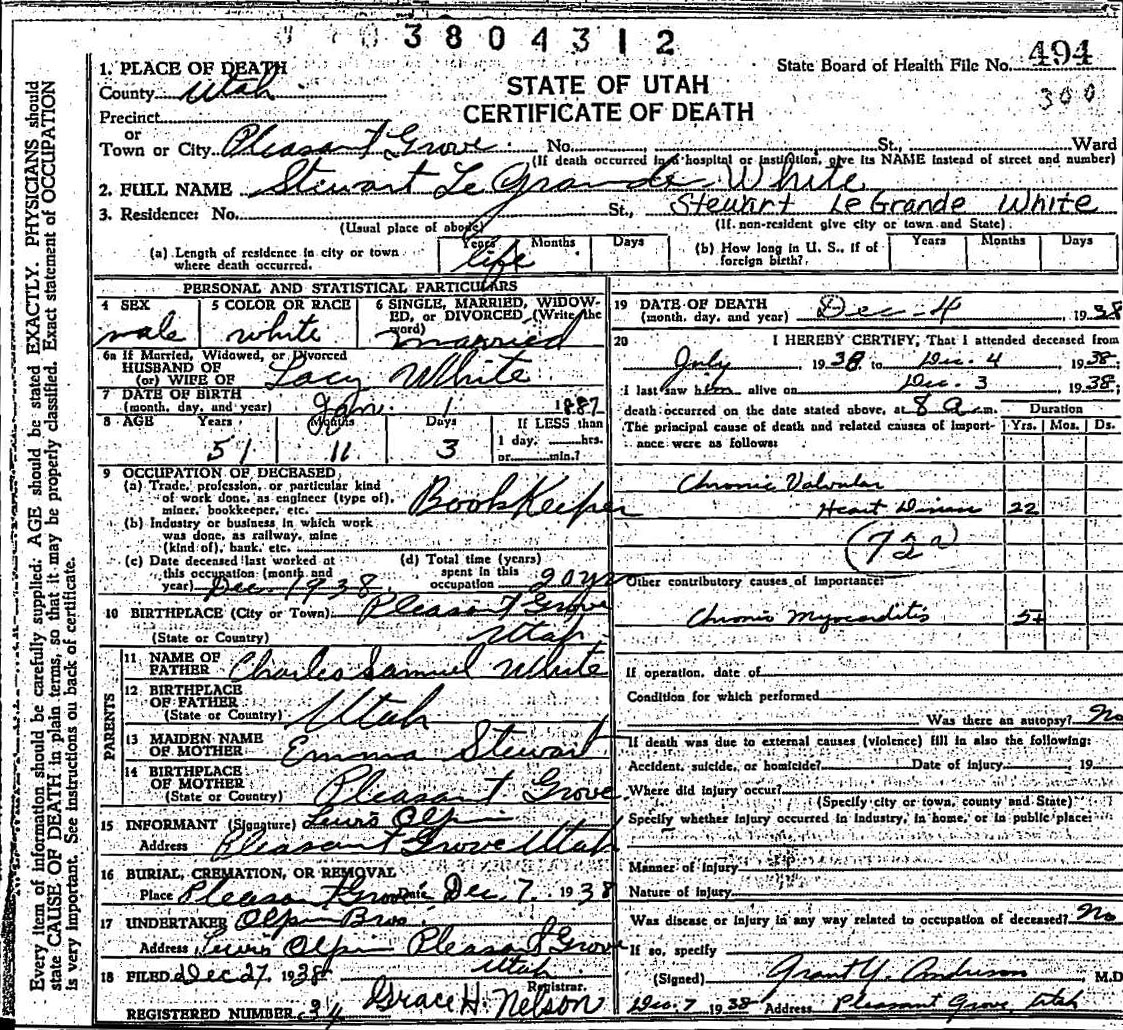 3804312
State Board of Health File No. 494
300
1. PLACE OF DEATH
County Utah
STATE OF UTAH
CERTIFICATE OF DEATH
Precinct
or
Town or City Pleasant Grove No. St., Ward
(If death occurred in a hospital or institution, give its NAME instead of street and number)
2. FULL NAME Stewart Le Grande White
3. Residence: No. St., Stewart LeGrande White
(Usual place of abode) (If non-resident give city or town and State)
(a) Length of residence in city or town where death occurred. Years Months Days
life
(b) How long in U. S., if of foreign birth? Years Months Days
PERSONAL AND STATISTICAL PARTICULARS
4 SEX 5 COLOR OR RACE 6 SINGLE, MARRIED, WIDOWED, or DIVORCED (Write the word)
male white married
6a If Married, Widowed, or Divorced
HUSBAND OF
(or) WIFE OF Lacy White
7 DATE OF BIRTH
(month, day, and year) Jan. 1 1887
8 AGE Years Months Days If LESS than
1 day, hrs.
or min.?
51 11 3
9 OCCUPATION OF DECEASED
(a) Trade, profession, or particular kind
of work done, as engineer (type of),
miner, bookkeeper, etc. BookKeeper
(b) Industry or business in which work
was done, as railway, mine
(kind of), bank, etc.
(c) Date deceased last worked at
this occupation (month and
year) Dec 1938
(d) Total time (years)
spent in this
occupation 20 yrs
10 BIRTHPLACE (City or Town) Pleasant Grove
(State or Country) Utah
PARENTS
11 NAME OF
FATHER Charles Samuel White
12 BIRTHPLACE
OF FATHER
(State or Country) Utah
13 MAIDEN NAME
OF MOTHER Emma Stewart
14 BIRTHPLACE
OF MOTHER
(State or Country) Pleasant Grove
15 INFORMANT (Signature) Lewis Olpin
Address Pleasant Grove Utah
16 BURIAL, CREMATION, OR REMOVAL
Place Pleasant Grove Date Dec. 7. 1938
17 UNDERTAKER Olpin Bros.
Address Lewis Olpin Pleasant Grove
Utah
18 FILED Dec 27 1938
Registrar.
REGISTERED NUMBER 34 Grace H. Nelson
19 DATE OF DEATH
(month, day, and year) Dec-4, 1938
20 I HEREBY CERTIFY, That I attended deceased from
July 1938 to Dec. 4 1938
I last saw him alive on Dec. 3 1938;
death occurred on the date stated above, at 8 a.m.
Duration
The principal cause of death and related causes of importance were as follows:
Yrs. Mos. Ds.
Chronic Valvular
Heart Disease 22
Other contributory causes of importance:
Chronic Myocarditis 5+
If operation, date of
Condition for which performed
Was there an autopsy? No
If death was due to external causes (violence) fill in also the following:
Accident, suicide, or homicide? Date of injury 19
Where did injury occur?
(Specify city or town, county and State)
Specify whether injury occurred in industry, in home, or in public place:
Manner of injury
Nature of injury
Was disease or injury in any way related to occupation of deceased? No
If so, specify
(Signed) Grant Y. Anderson M.D.
Dec. 7 1938 Address Pleasant Grove, Utah
Every item of information should be carefully supplied. AGE should be stated EXACTLY. PHYSICIANS should
state CAUSE OF DEATH in plain terms, so that it may be properly classified. Exact statement of OCCUPATION
is very important. See instructions on back of certificate.